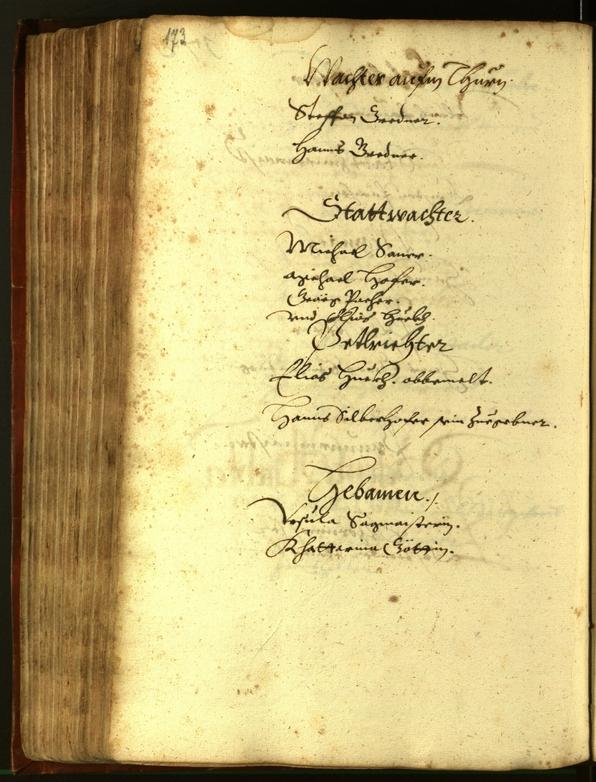 173
Wachter aufm Thurn.
Steffan Gredner.
Hanns Gredner.
Stattwachter.
Michael Saurr.
Michael Hofer.
Georg Pacher.
vnd Elias Huebl.
Petlrichter
Elias Huebl. obbemelt.
Hanns Silberhofer sein Zuegebner.
Hebamen./
Vrsula Sagmaisterin.
Khatterina Göttin.